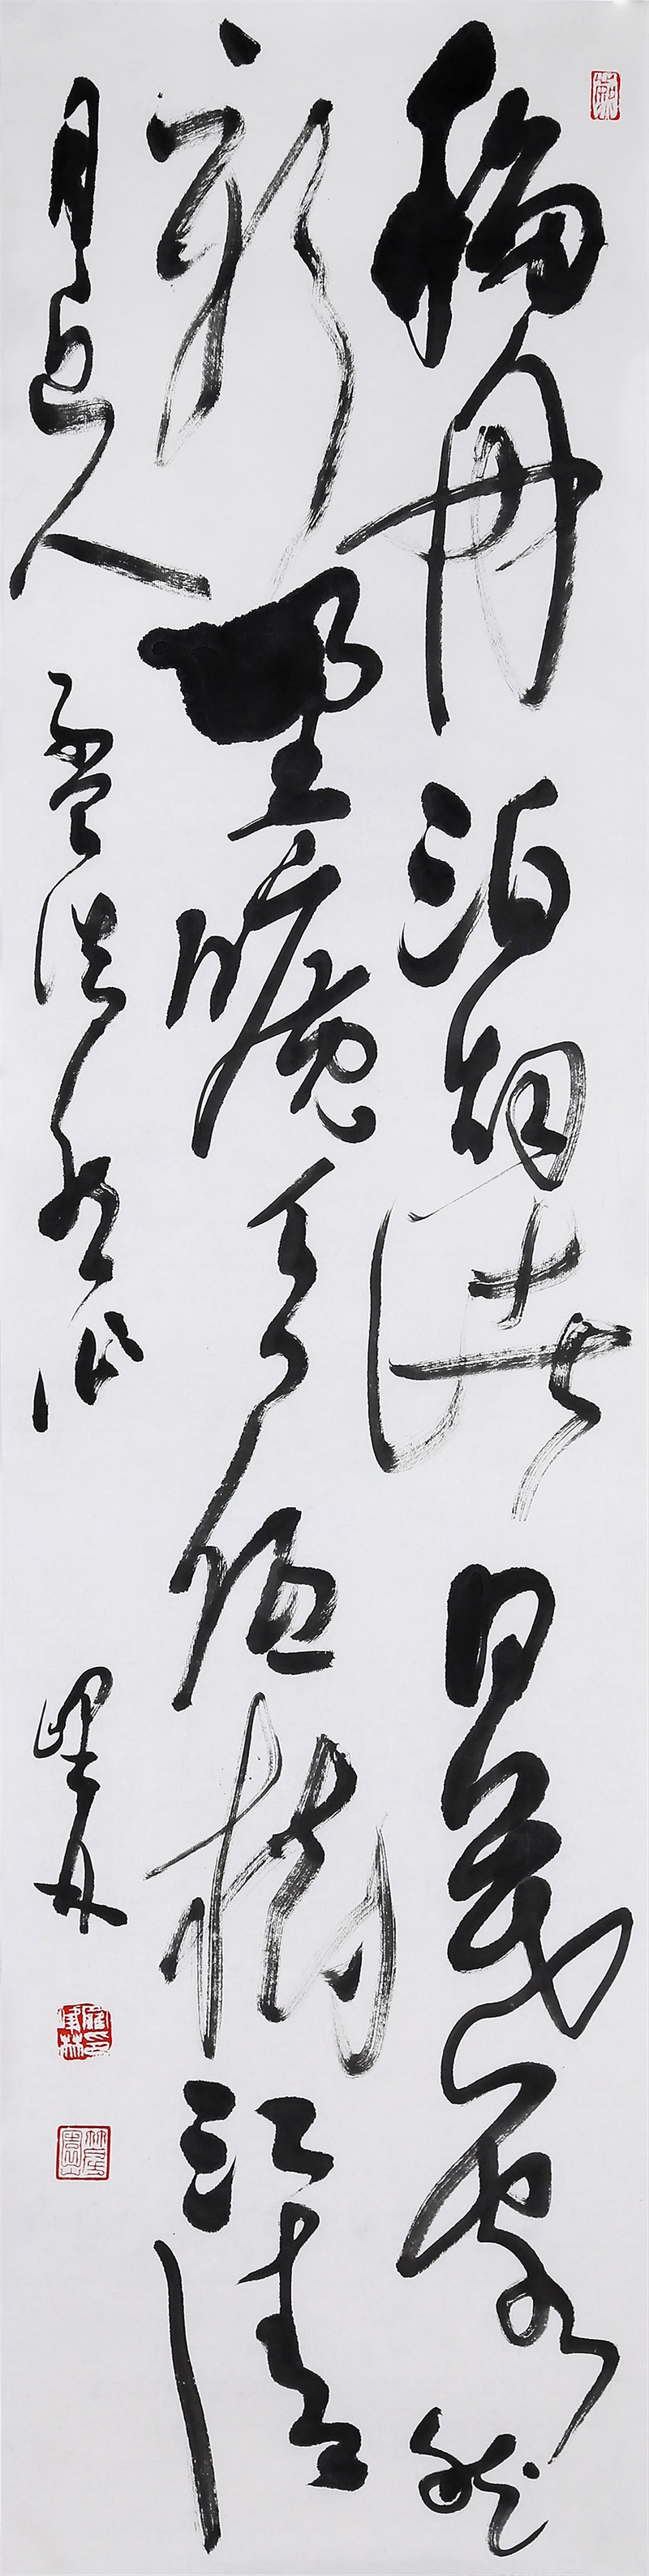 移舟泊烟渚日暮客愁
新野曠天低樹江清
月近人 孟浩然